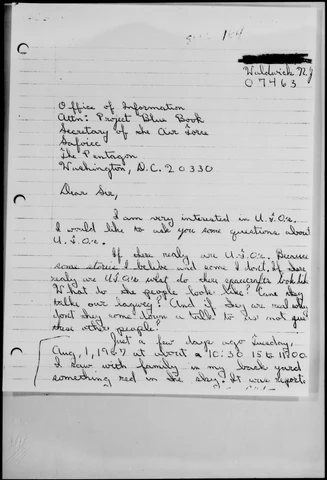 164
Waldwick NJ
07463
Office of Information
Attn: Project Blue Book
Secretary of the Air Force
Safoicc
The Pentagon
Washington, D.C. 20330
Dear Sir,
I am very interested in U.F.Os.
I would like to ask you some questions about
U.F.Os.
If there realy are U.F.Os. Because
some stories I believe and some I don't. If there
realy are U.F.Os what do these spacecrafts look like
What do the people look like? Can they
talke our
And if they are real why
don't they come down a talk to us not just
these other people?
Just a few days ago Tuesday,
Aug, 1, 1967 at abort a 10:30 15 to 11:00
I saw with family in my back yard
something red in the sky. It was report